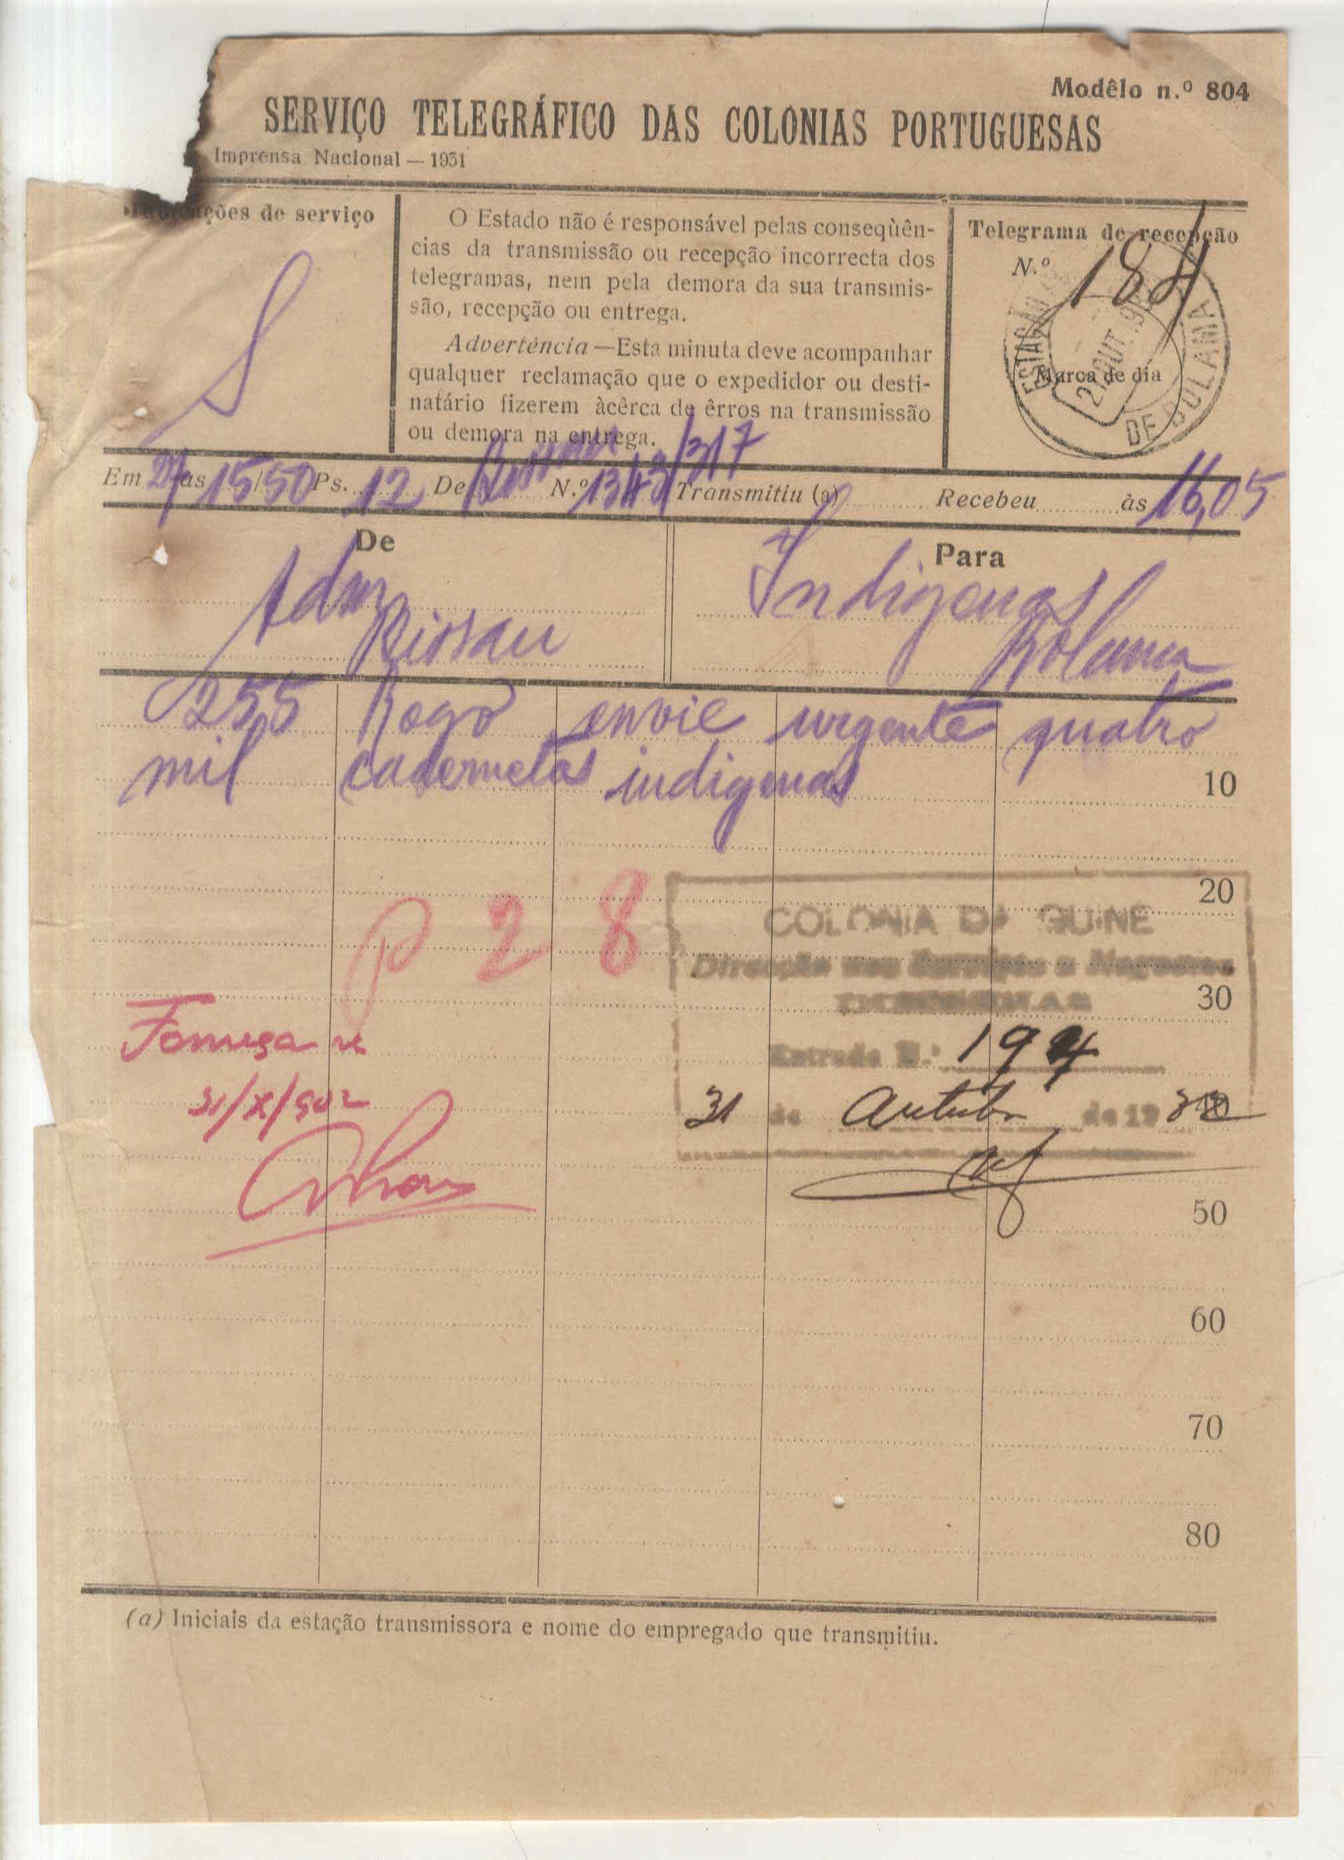 Modêlo n.º 804
SERVIÇO TELEGRÁFICO DAS COLONIAS PORTUGUESAS
Imprensa Nacional — 1931
de serviço
S
O Estado não é responsável pelas conseqùên-
cias da transmissão ou recepção incorrecta dos
telegramas, nem pela demora da sua transmis-
são, recepção ou entrega.
Advertência — Esta minuta deve acompanhar
qualquer reclamação que o expedidor ou desti-
natário fizerem àcêrca de êrros na transmissão
ou demora na entrega.
Telegrama de recepção
N.º 184
Marca de dia
ESTAÇÃO
OUT
DE BOLAMA
Em 29 às 15/50 Ps. 12 De Bissau N.º 1343/317 Transmitiu (a) Recebeu às 16,05
De
Adm
Bissau
Para
Indigenas
Bolama
255 Rogo envie urgente quatro
mil cadernetas indigenas
10
20
30
50
60
70
80
P 28
COLONIA DA GUINE
Direcção dos Serviços e Negocios
INDIGENAS
Entrada N.º 194
31 de Outubro de 19
Forneça-se
31/X/932
(a) Iniciais da estação transmissora e nome do empregado que transmitiu.